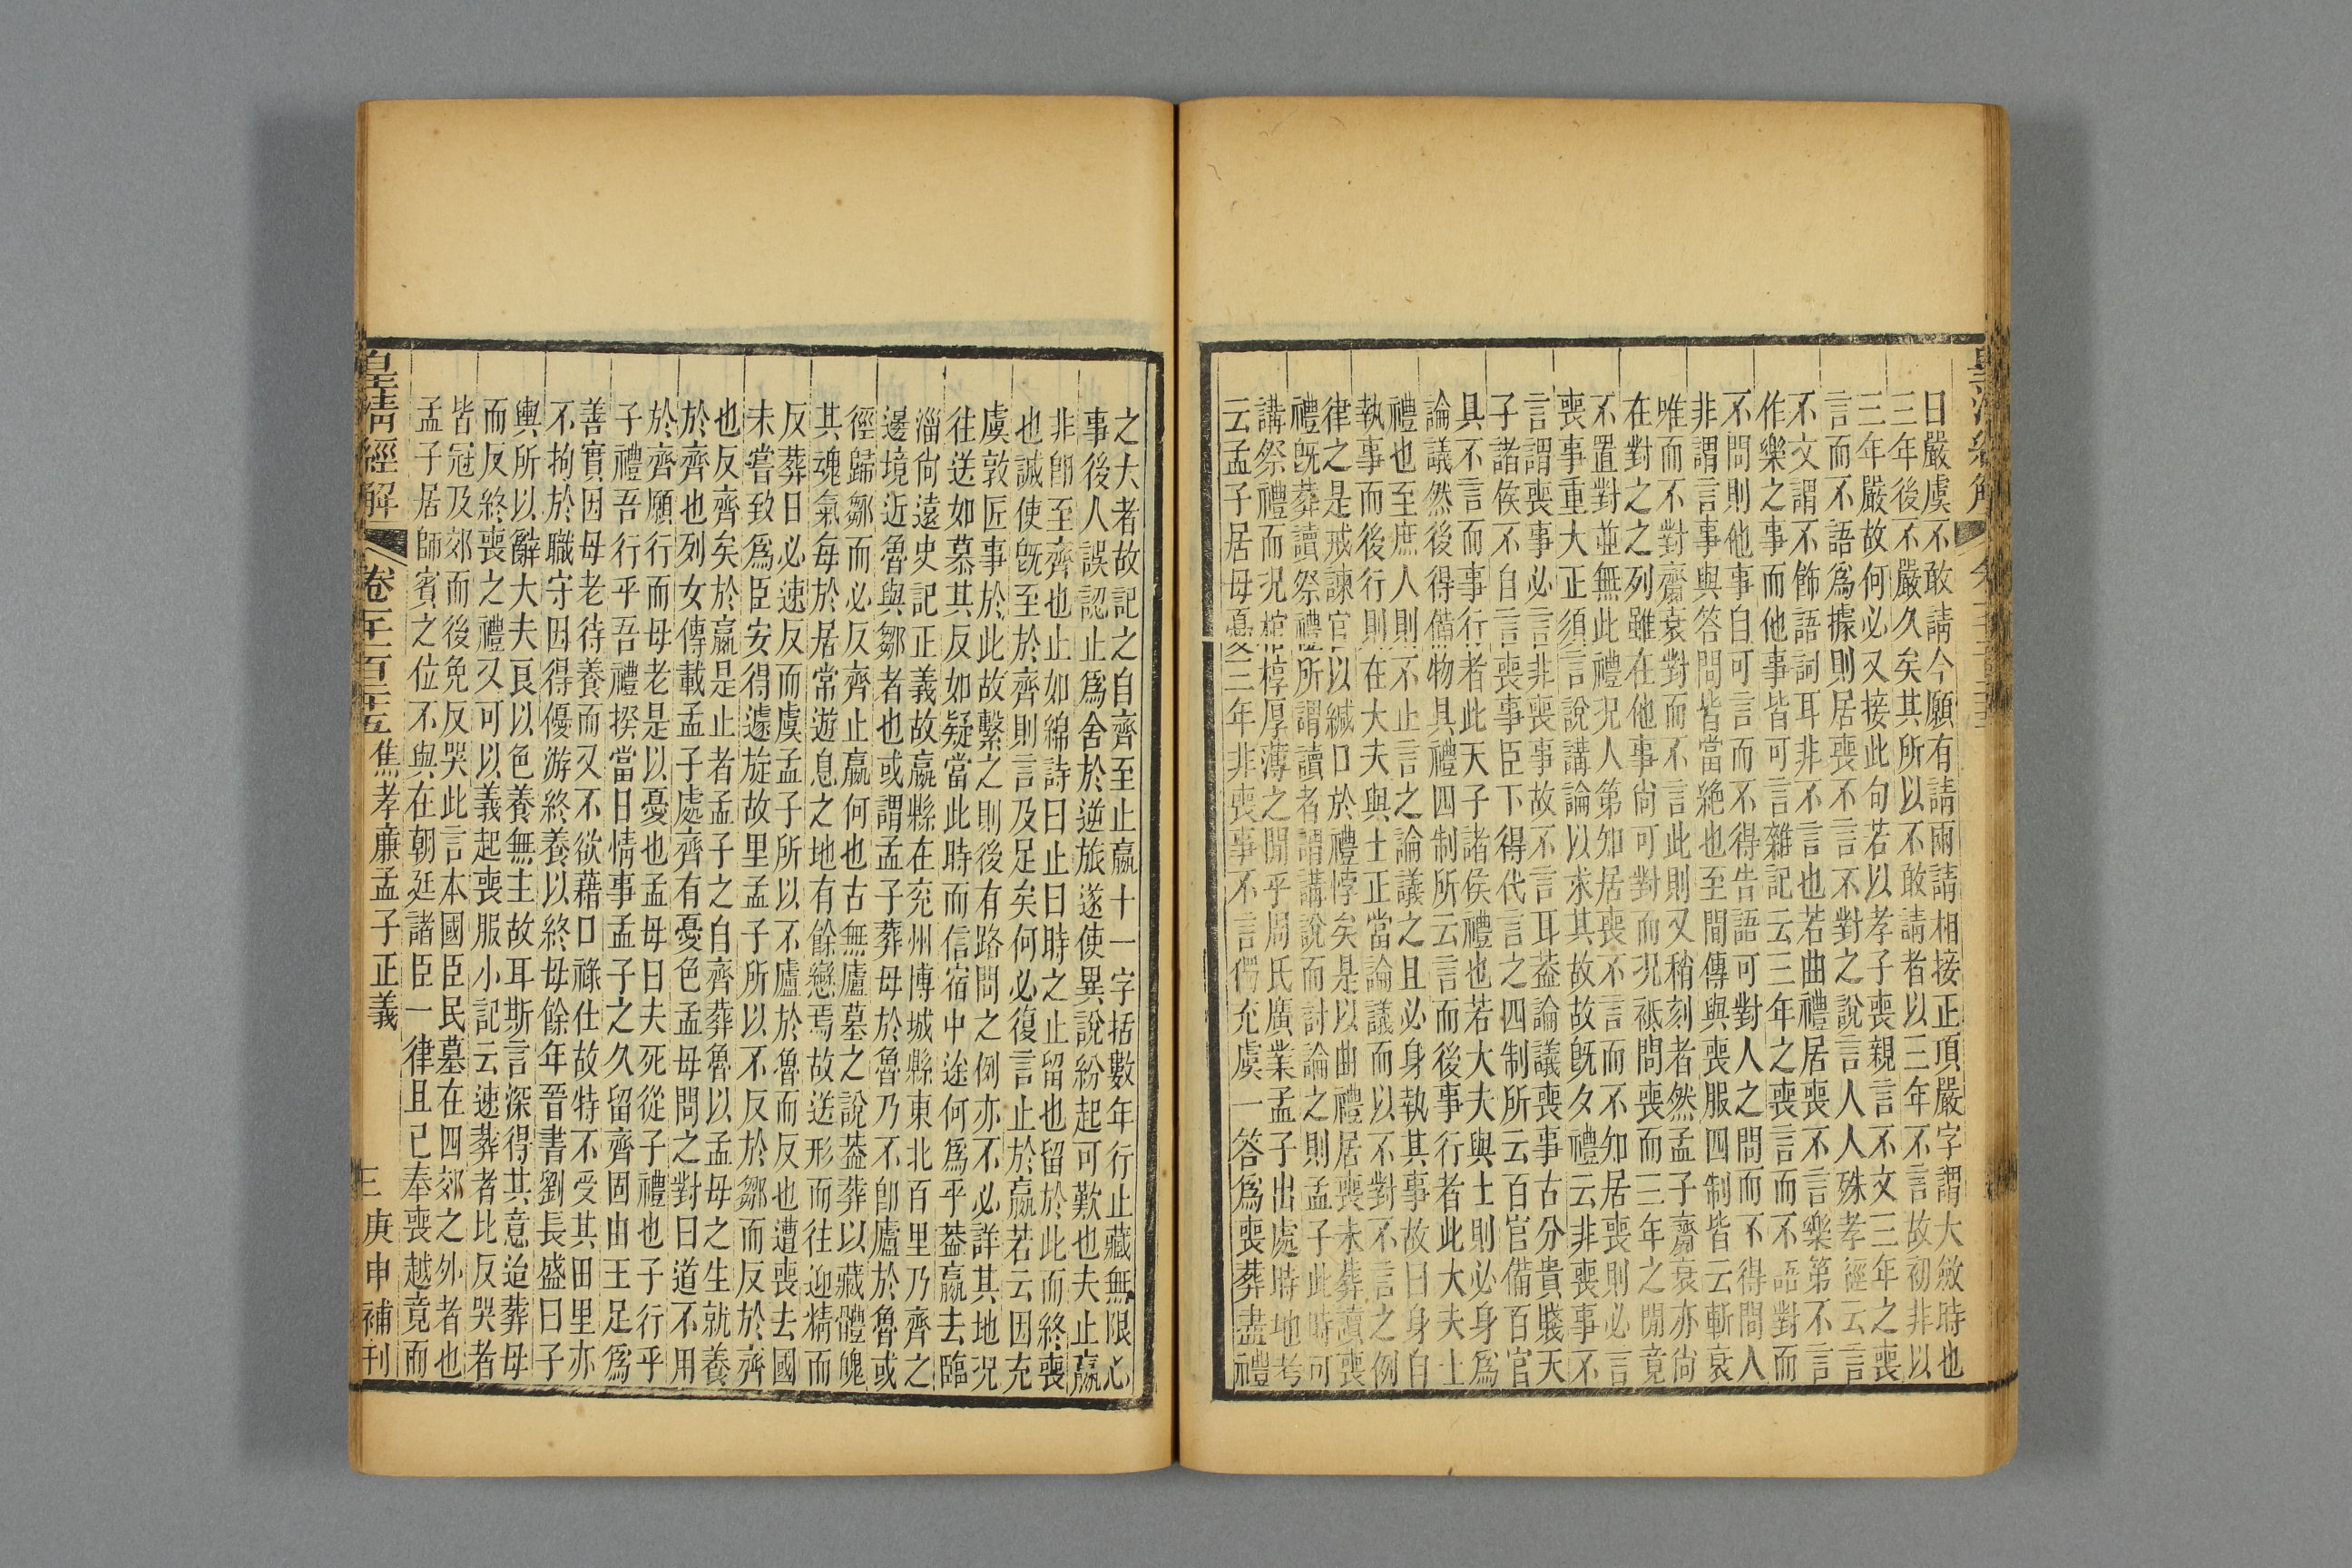 曰嚴虞不敢請今願有請兩請相接正頂嚴字謂大斂時也
三年後不嚴久矣其所以不敢請者以三年不言故初非以
三年嚴故何必又接此句若以孝子喪親言不文三年之喪
言而不語爲據則居喪不言不對之說言人人殊孝經云言
不文謂不飾語詞耳非不言也若曲禮居喪不言樂第不言
作樂之事而他事皆可言雜記云三年之喪言而不語對而
不問則他事自可言而不得告語可對人之問而不得問人
非謂言事與答問皆當絶也至間傳與喪服四制皆云斬衰
唯而不對齊衰對而不言此則又稍刻者然孟子齊衰亦尙
在對之之列雖在他事尙可對而況祗問喪而三年之閒竟
不置對並無此禮況人第知居喪不言而不知居喪則必言
喪事重大正須言說講論以求其故故旣夕禮云非喪事不
言謂喪事必言非喪事故不言耳葢論議喪事古分貴賤天
子諸侯不自言喪事臣下得代言之四制所云百官備百官
具不言而事行者此天子諸侯禮也若大夫與士則必身爲
論議然後得備物具禮四制所云言而後事行者此大夫士
禮也至庶人則不止言之論議之且必身執其事故曰身自
執事而後行則在大夫與士正當論議而以不對不言之例
律之是戒諫官以緘口於禮悖矣是以曲禮居喪未葬讀喪
禮旣葬讀祭禮所謂讀者謂講說而討論之則孟子此時可
講祭禮而況棺椁厚薄之閒乎周氏廣業孟子出處時地考
云孟子居母憂三年非喪事不言偶充虞一答爲喪葬盡禮
之大者故記之自齊至止嬴十一字括數年行止藏無限心
事後人誤認止爲舍於逆旅遂使異說紛起可歎也夫止嬴
非卽至齊也止如綿詩曰止曰時之止留也留於此而終喪
也誠使旣至於齊則言及足矣何必復言止於嬴若云因充
虞敦匠事於此故繫之則後有路問之例亦不必詳其地況
往送如慕其反如疑當此時而信宿中途何爲乎葢嬴去臨
淄尙遠史記正義故嬴縣在兖州博城縣東北百里乃齊之
邊境近魯與鄒者也或謂孟子葬母於魯乃不卽廬於魯或
徑歸鄒而必反齊止嬴何也古無廬墓之說葢葬以藏體魄
其魂氣每於居常遊息之地有餘戀焉故送形而往迎精而
反葬日必速反而虞孟子所以不廬於魯而反也遭喪去國
未嘗致爲臣安得遽旋故里孟子所以不反於鄒而反於齊
也反齊矣於嬴是止者孟子之自齊葬魯以孟母之生就養
於齊也列女傳載孟子處齊有憂色孟母問之對曰道不用
於齊願行而母老是以憂也孟母曰夫死從子禮也子行乎
子禮吾行乎吾禮揆當日情事孟子之久留齊固由王足爲
善實因母老待養而又不欲藉口祿仕故特不受其田里亦
不拘於職守因得優游終養以終母餘年晉書劉長盛曰子
輿所以辭大夫良以色養無主故耳斯言深得其意迨葬母
而反終喪之禮又可以義起喪服小記云速葬者比反哭者
皆冠及郊而後免反哭此言本國臣民墓在四郊之外者也
孟子居師賓之位不與在朝廷諸臣一律且已奉喪越竟而
皇清經解
焦孝廉孟子正義
庚申補刊